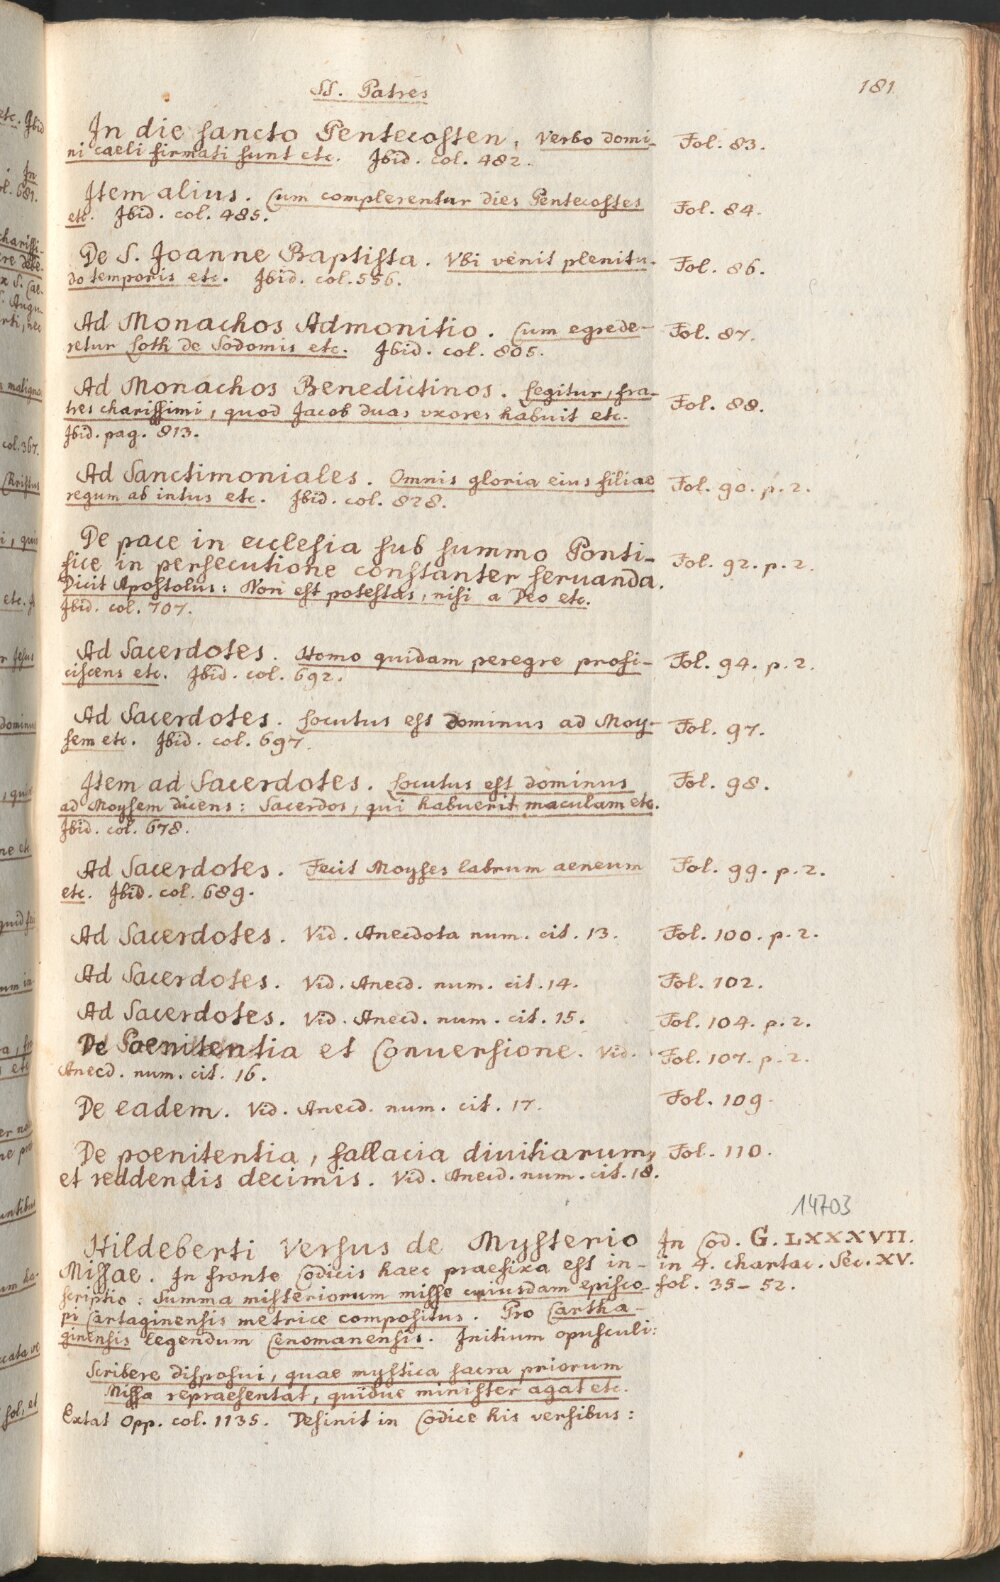 SS. Patres
181
In die sancto Pentecosten, Verbo domi- Fol. 83.
ni caeli firmati sunt etc. Ibid. col. 482.
Item alius. Cum complerentur dies Pentecostes Fol. 84.
etc. Ibid. col. 485.
De S. Joanne Baptista. Vbi venit plenitu- Fol. 86.
do temporis etc. Ibid. col. 556.
Ad Monachos Admonitio. Cum egrede- Fol. 87.
retur Loth de Sodomis etc. Ibid. col. 805.
Ad Monachos Benedictinos. Legitur, fra- Fol. 88.
tres charissimi, quod Jacob duas vxores habuit etc.
Ibid. pag. 813.
Ad Sanctimoniales. Omnis gloria eius filiae Fol. 90. p. 2.
regum ab intus etc. Ibid. col. 828.
De pace in ecclesia sub summo Ponti-
fice in persecutione constanter seruanda. Fol. 92. p. 2.
Dicit Apostolus: Non est potestas, nisi a Deo etc.
Ibid. col. 707.
Ad Sacerdotes. Homo quidam peregre profi- Fol. 94. p. 2.
ciscens etc. Ibid. col. 692.
Ad Sacerdotes. Locutus est Dominus ad Moy- Fol. 97.
sem etc. Ibid. col. 697.
Item ad Sacerdotes. Locutus est dominus Fol. 98.
ad Moysem dicens: Sacerdos, qui habuerit maculam etc.
Ibid. col. 678.
Ad Sacerdotes. Fecit Moyses labrum aeneum Fol. 99. p. 2.
etc. Ibid. col. 689.
Ad Sacerdotes. Vid. Anecdota num. cit. 13. Fol. 100. p. 2.
Ad Sacerdotes. Vid. Anecd. num. cit. 14. Fol. 102.
Ad Sacerdotes. Vid. Anecd. num. cit. 15. Fol. 104. p. 2.
De Poenitentia et Conuersione. Vid. Fol. 107. p. 2.
Anecd. num. cit. 16.
De eadem. Vid. Anecd. num. cit. 17. Fol. 109.
De poenitentia, fallacia diuitiarum, Fol. 110.
et reddendis decimis. Vid. Anecd. num. cit. 18.
14703
Hildeberti Versus de Mysterio In Cod. G. LXXXVII.
Missae. In fronte Codicis haec praefixa est in- in 4. chartac. Sec. XV.
scriptio: Summa misteriorum misse cuiusdam episco- fol. 35-52.
pi Cartaginensis metrice compositus. Pro Cartha-
ginensis legendum Cenomanensis. Initium opusculi:
Scribere disposui, quae mystica sacra priorum
Missa repraesentat, quidue minister agat etc.
Extat Opp. col. 1135. Desinit in Codice his versibus: